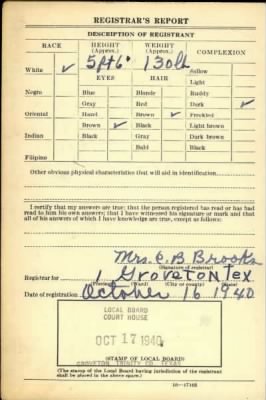 REGISTRAR'S REPORT
DESCRIPTION OF REGISTRANT
RACE HEIGHT (Approx.) WEIGHT (Approx.) COMPLEXION
White ✓ 5 ft 6" 130 lb Sallow
EYES HAIR Light
Negro Blue Blonde Ruddy
Gray Red Dark ✓
Oriental Hazel Brown ✓ Freckled
Brown ✓ Black Light brown
Indian Black Gray Dark brown
Bald Black
Filipino
Other obvious physical characteristics that will aid in identification
I certify that my answers are true; that the person registered has read or has had
read to him his own answers; that I have witnessed his signature or mark and that
all of his answers of which I have knowledge are true, except as follows:
Mrs. C B Brooks
(Signature of registrar)
Registrar for 1 Groveton Tex
(Precinct) (Ward) (City or county) (State)
Date of registration October 16 1940
LOCAL BOARD
COURT HOUSE
OCT 17 1940
(STAMP OF LOCAL BOARD)
GROVETON, TRINITY CO. TEXAS
(The stamp of the Local Board having jurisdiction of the registrant
shall be placed in the above space.)